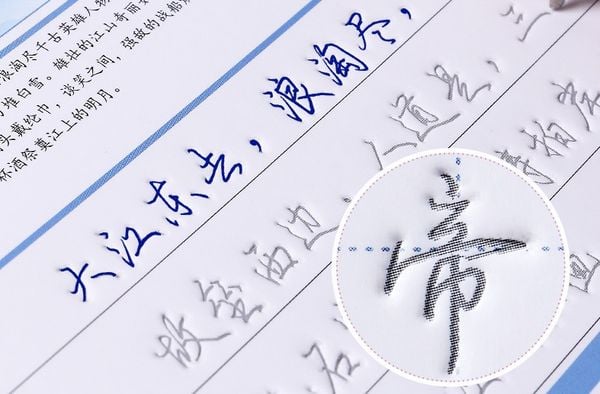 浪淘尽千古英雄人物
堆白雪。雄壮的江山奇丽
头戴纶巾，谈笑之间，强敌的战船
杯酒祭奠江上的明月。
大江东去，浪淘尽，
故垒西边，人道是，三
石
拍岸
帝